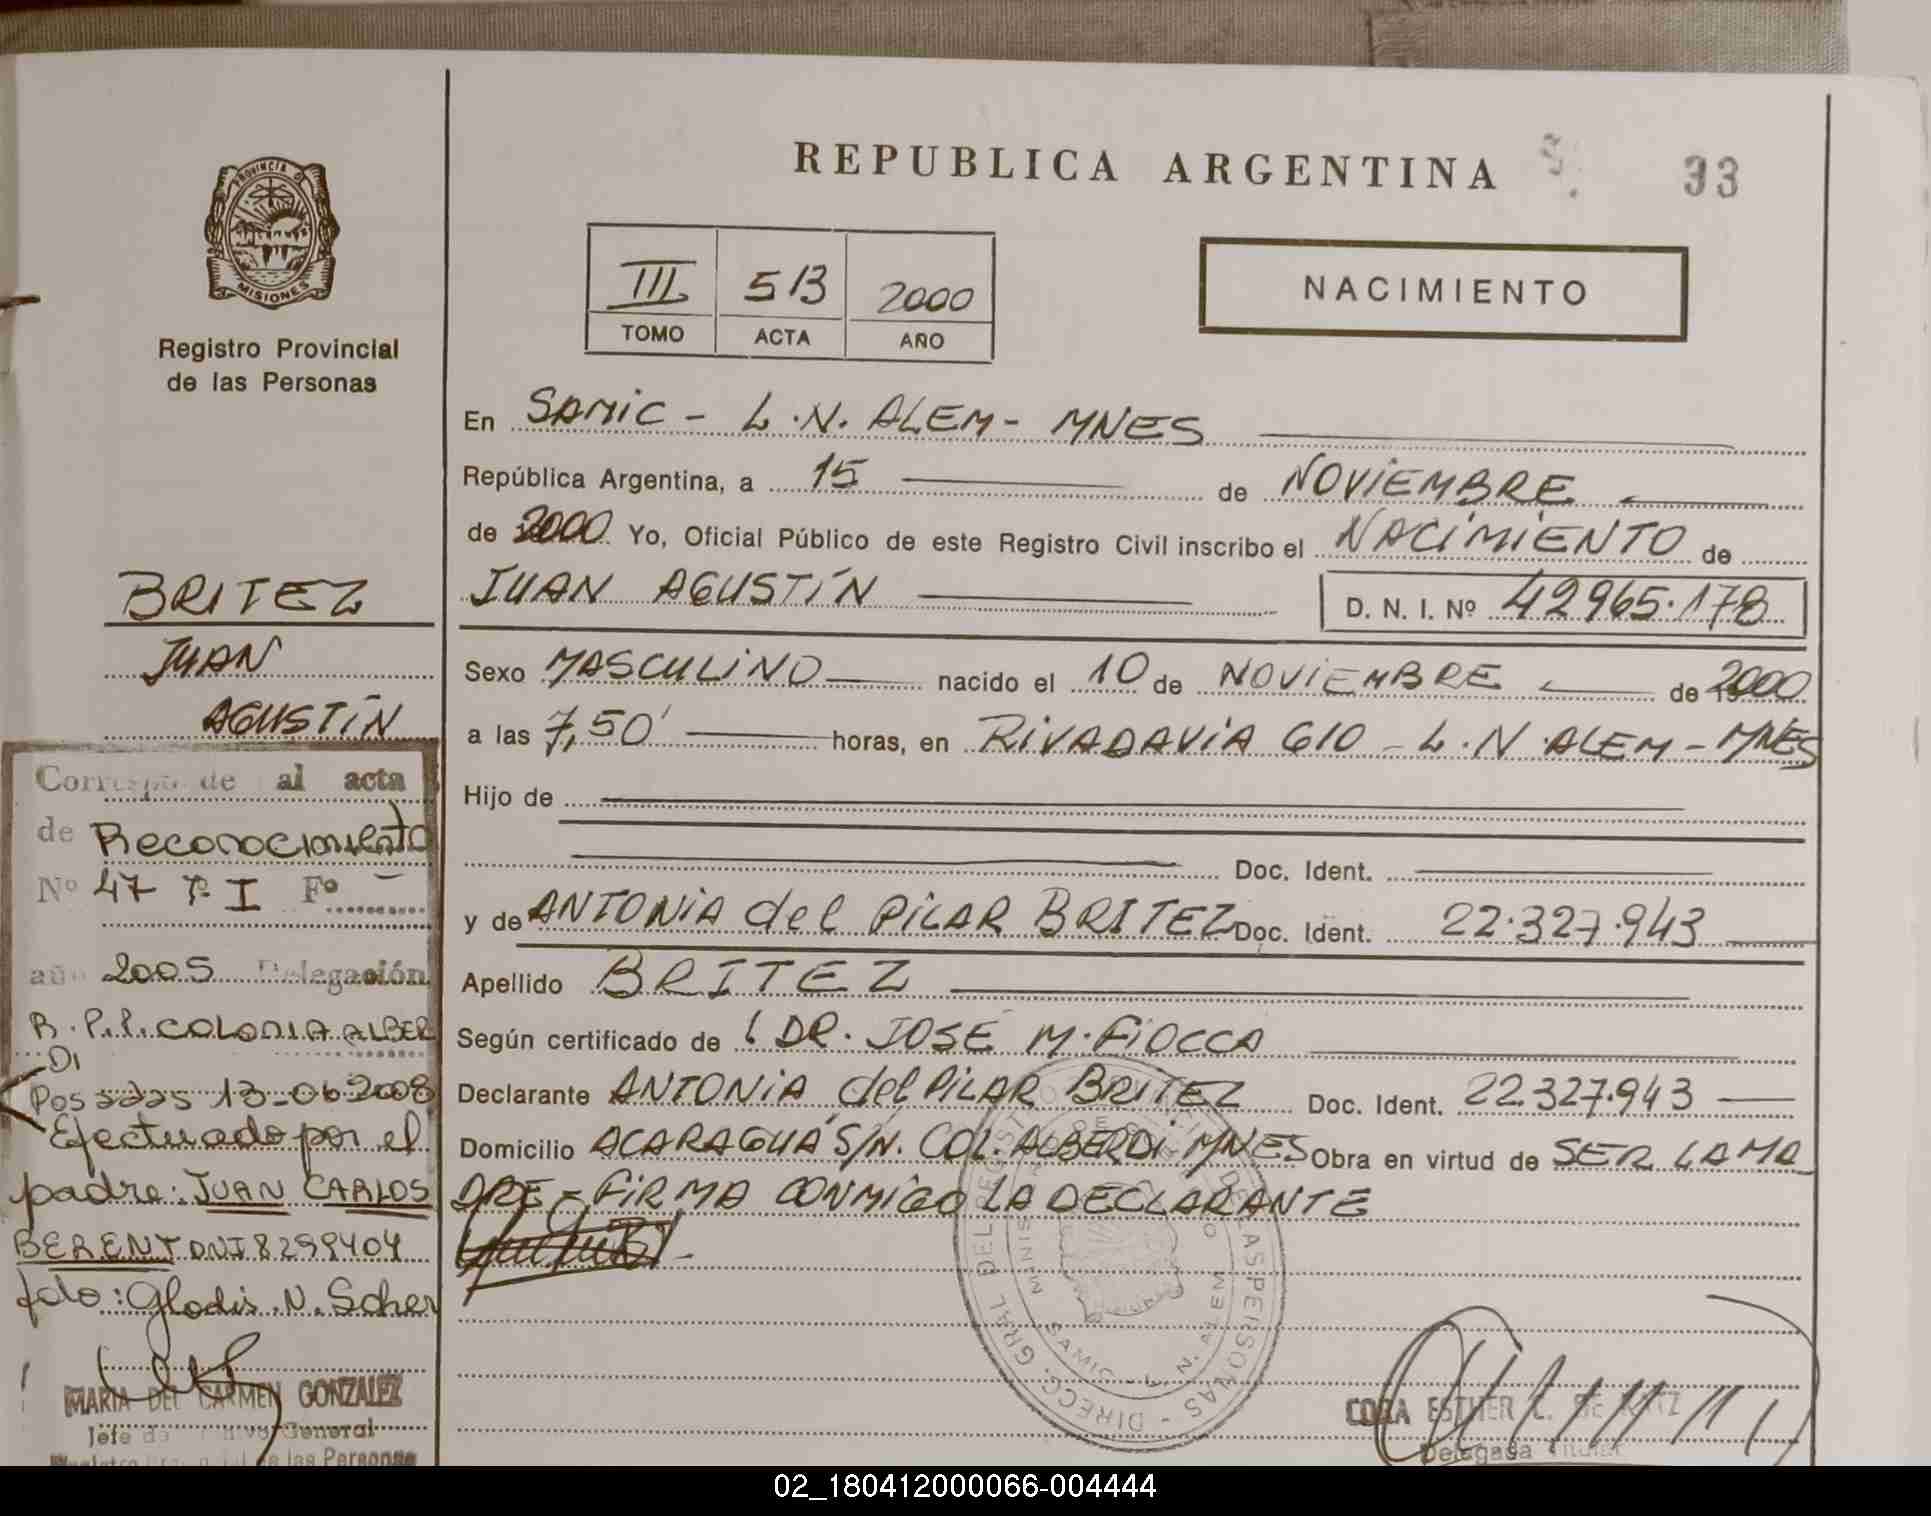 REPUBLICA ARGENTINA
33
PROVINCIA D
MISIONES
Registro Provincial
de las Personas
III 513 2000
TOMO ACTA AÑO
NACIMIENTO
En SAMIC - L.N. ALEM - MNES
República Argentina, a 15 de NOVIEMBRE
de 2000 Yo, Oficial Público de este Registro Civil inscribo el NACIMIENTO de
JUAN AGUSTÍN D. N. I. Nº 42965.178
Sexo MASCULINO nacido el 10 de NOVIEMBRE de 2000
a las 7,50' horas, en RIVADAVIA 610 - L.N. ALEM - MNES
Hijo de
Doc. Ident.
y de ANTONIA del PILAR BRITEZ Doc. Ident. 22.327.943
Apellido BRITEZ
Según certificado de DR. JOSE M. FIOCCA
Declarante ANTONIA del PILAR BRITEZ Doc. Ident. 22.327.943
Domicilio ACARAGUA S/N. COL. ALBERDI MNES Obra en virtud de SER LA MA
DRE - FIRMA CONMIGO LA DECLARANTE
BRITEZ
JUAN
AGUSTÍN
Corresponde al acta
de Reconocimiento
Nº 47 Tº I Fº -
año 2005 Delegación
R.P.P. COLONIA ALBER
DI
Posadas 13-06 2008
Efectuado por el
padre: JUAN CARLOS
BERENT DNI 8299404
fdo: Gladis N. Scher
MARIA DEL CARMEN GONZALEZ
Jefe de General
de las Personas
DIRECC. GRAL DEL REGISTRO DE LAS PERSONAS
SAMIC - L. N. ALEM
CORA ESTHER
Delegada Titular
02_180412000066-004444